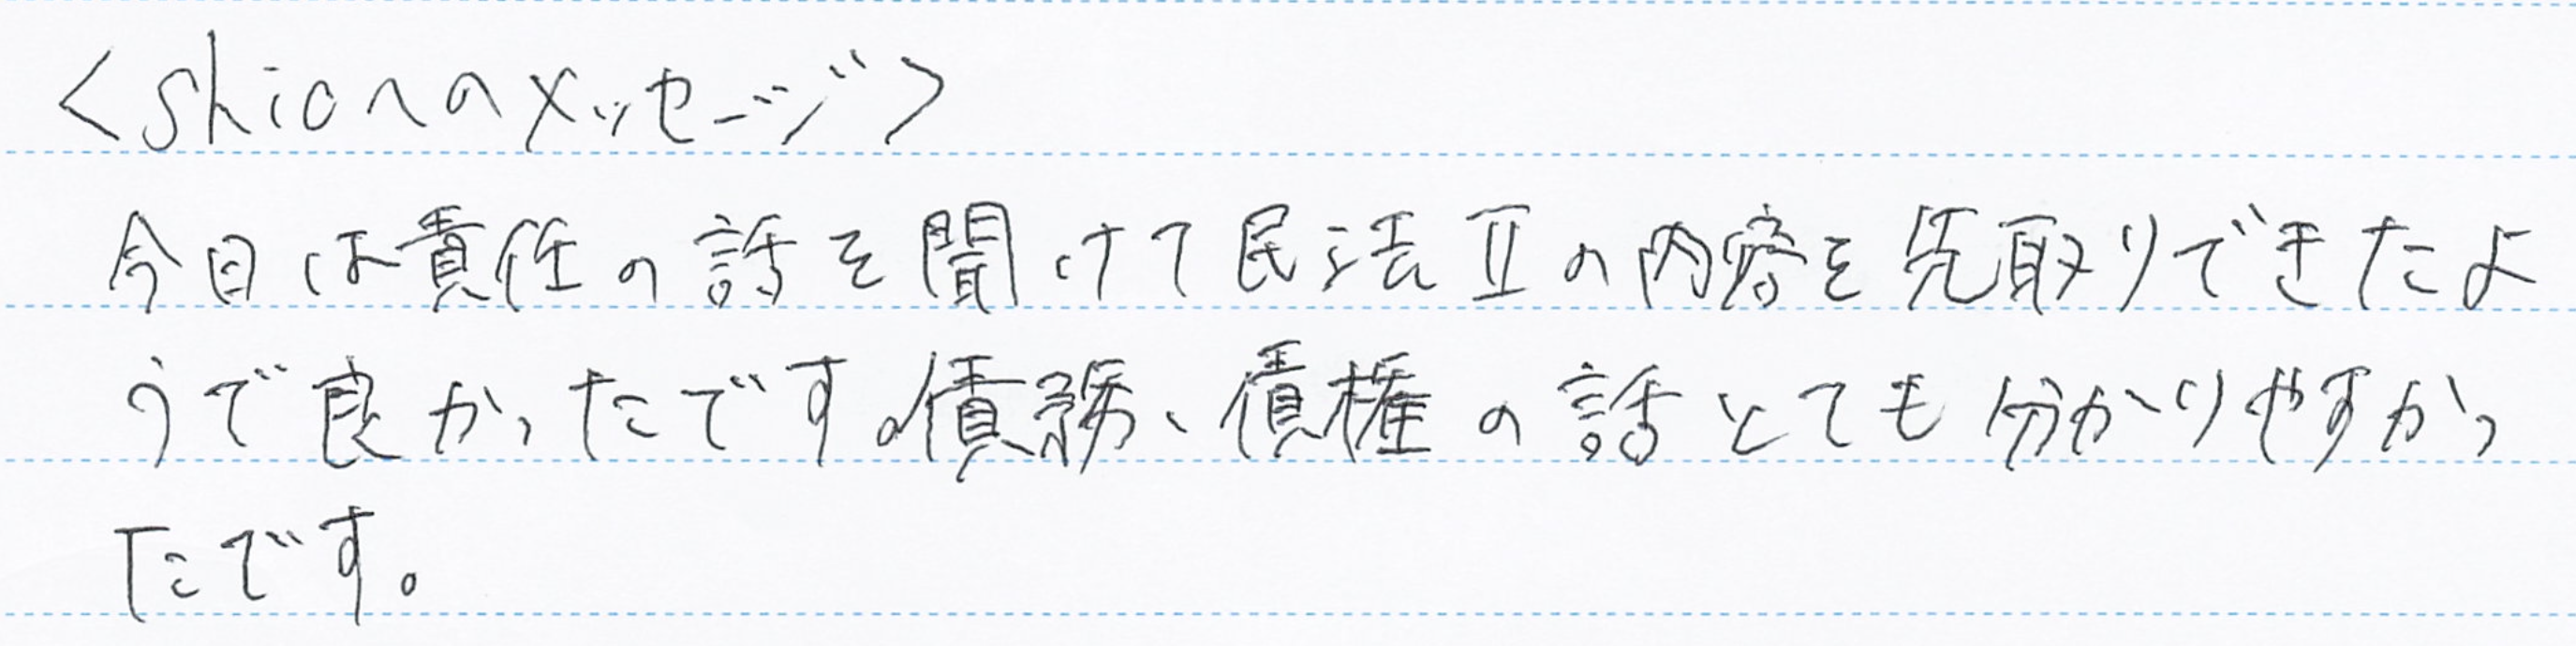 <shioへのメッセージ>
今日は責任の話を聞けて民法Ⅱの内容を先取りできたよ
うで良かったです。債務、債権の話とても分かりやすかっ
たです。